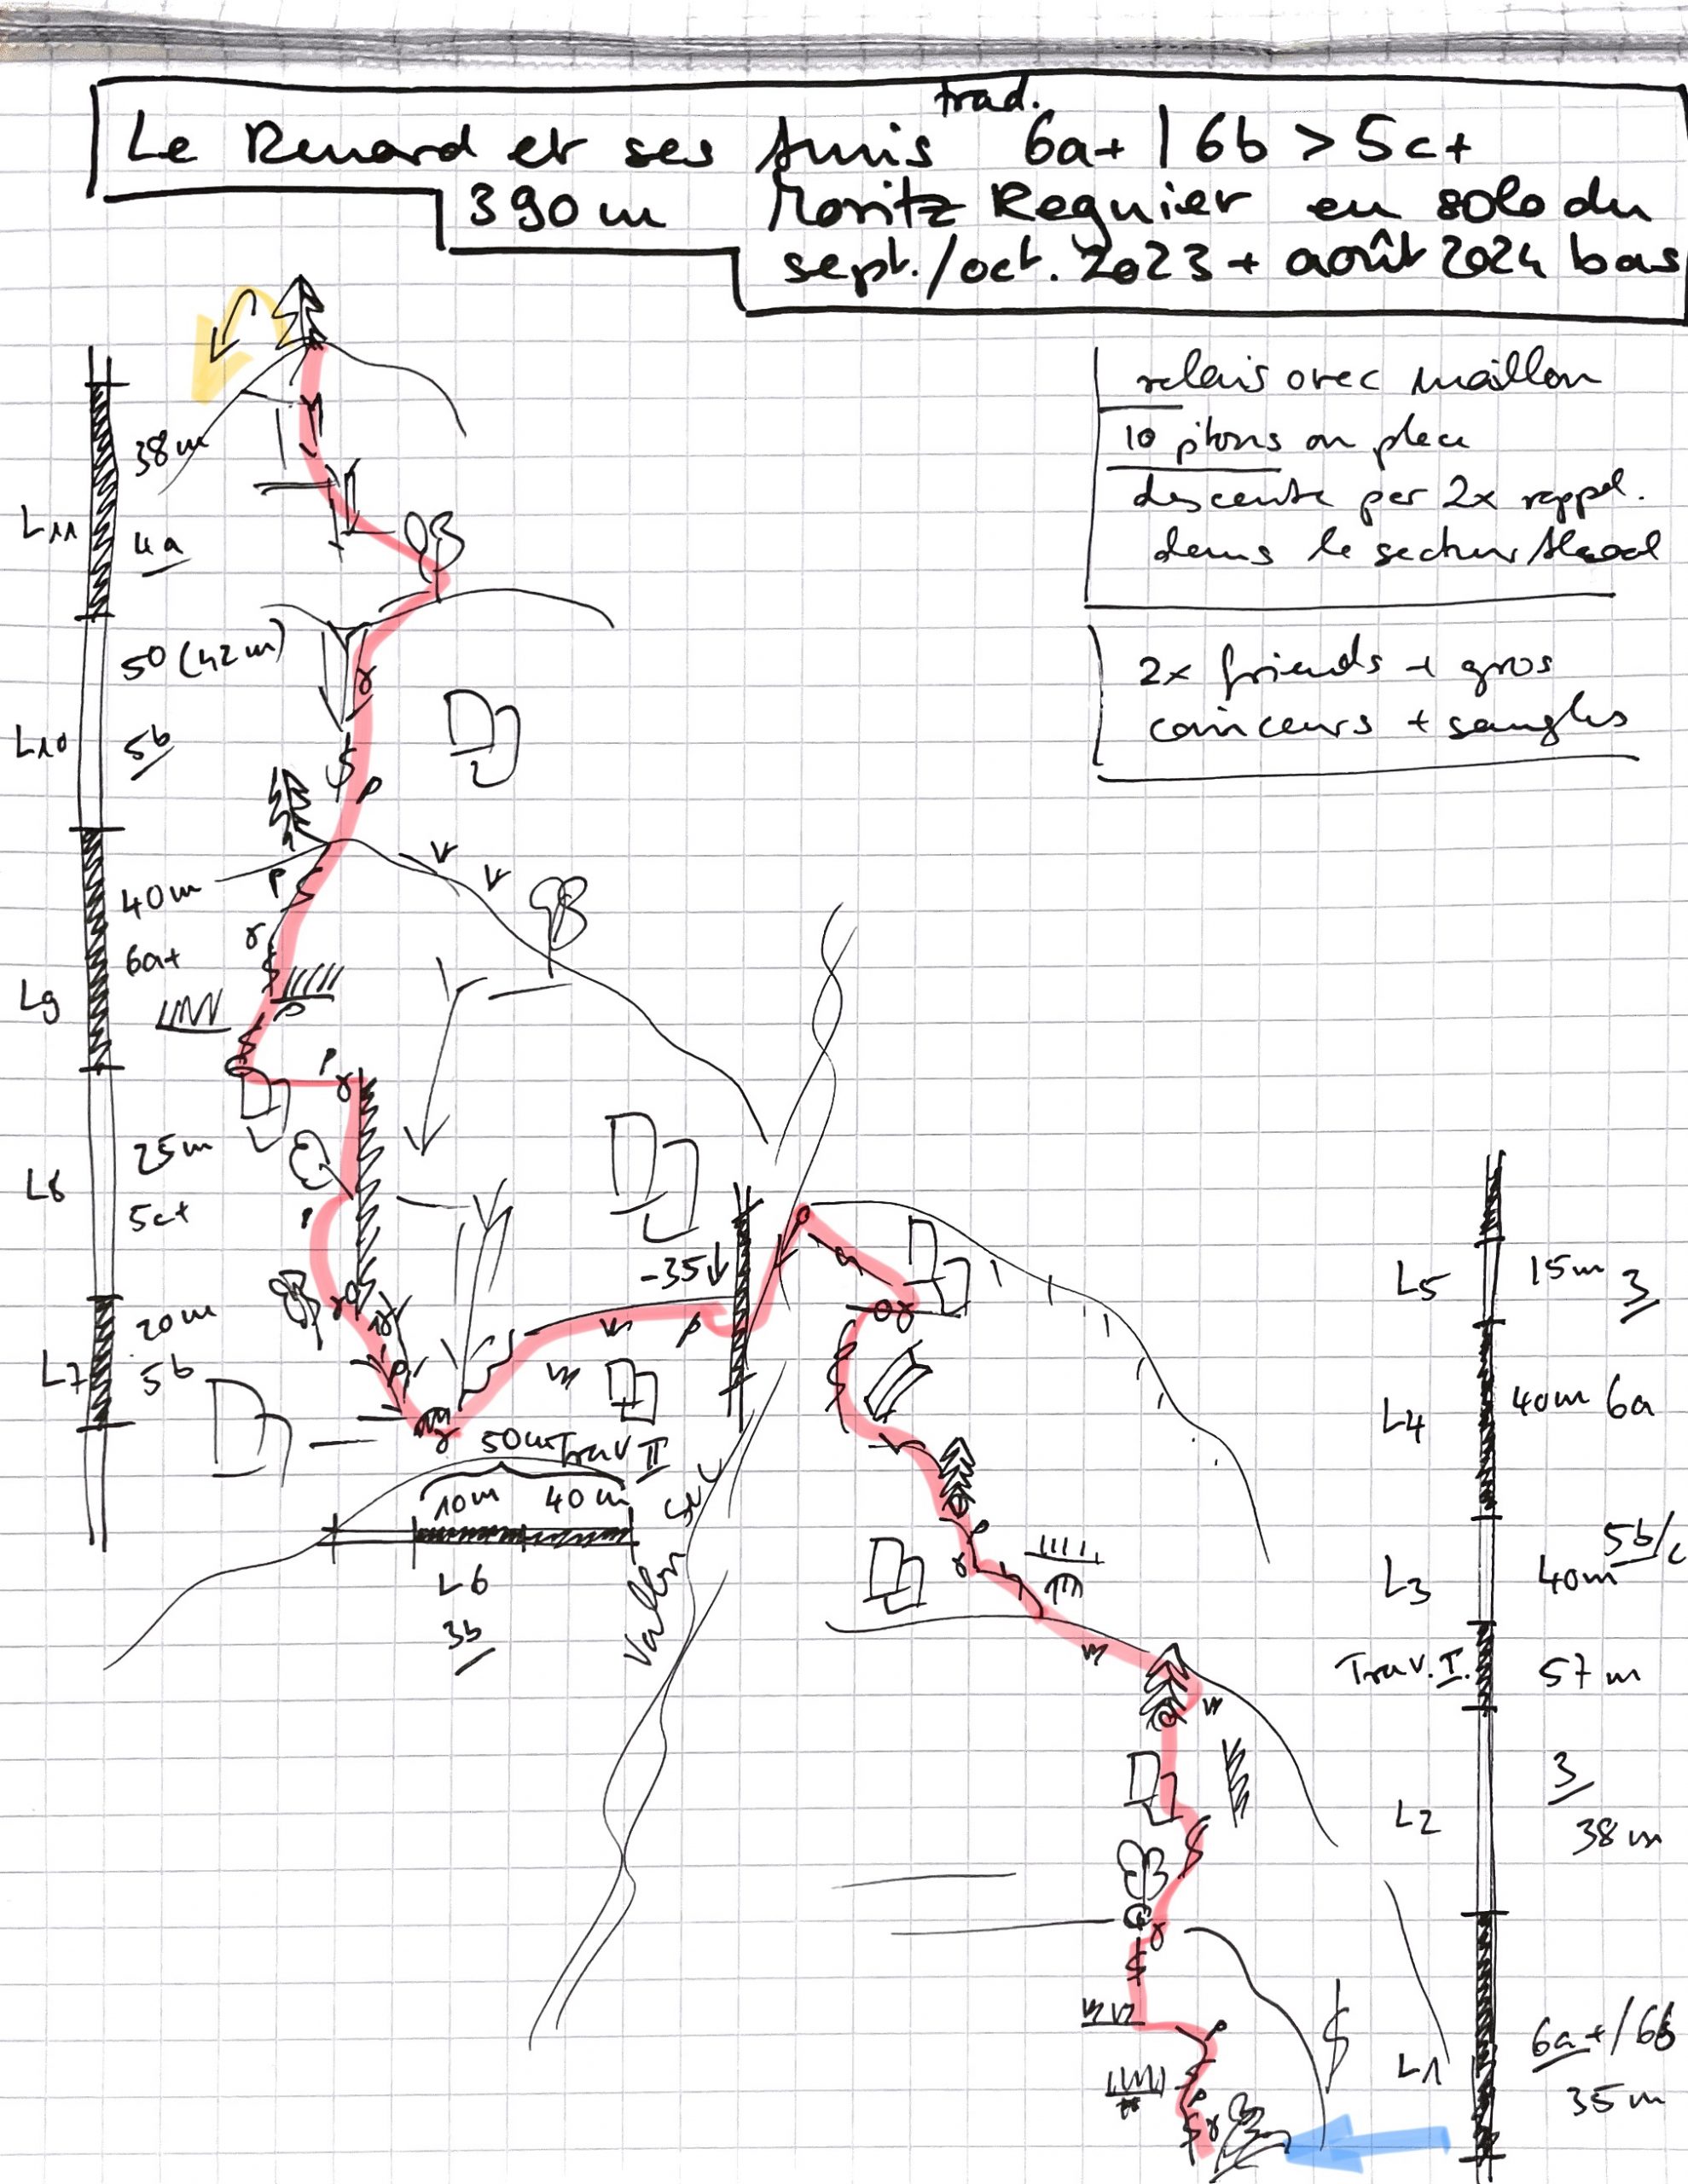 trad.
Le Renard et ses Amis 6a+ | 6b > 5c+
390m Moritz Regnier en solo du
sept./oct. 2023 + août 2024 bas
relais avec maillon
10 pitons en place
descente par 2x rappel.
dans le secteur
2x friends + gros
coinceurs + sangles
L11
38m
4a
L10
50 (42m)
5b
L9
40m
6a+
L8
25m
5c+
L7
20m
5b
-35
50m Trav II
10m 40m
L6
3b
Vallon Sec
L5 15m 3
L4 40m 6a
L3 40m 5b/c
Trav. I. 57m
L2 3
38m
L1 6a+/6b
35m